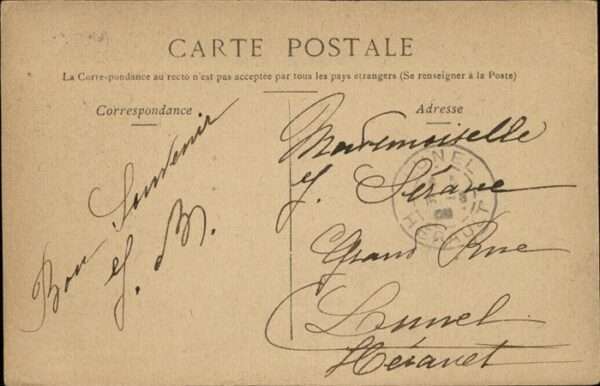 CARTE POSTALE
La Correspondance au recto n'est pas acceptée par tous les pays étrangers (Se renseigner à la Poste)
Correspondance
Adresse
Bon Souvenir
J. M.
Mademoiselle
J. Sérane
Grand Rue
Lunel
Hérault
LUNEL
HERAULT